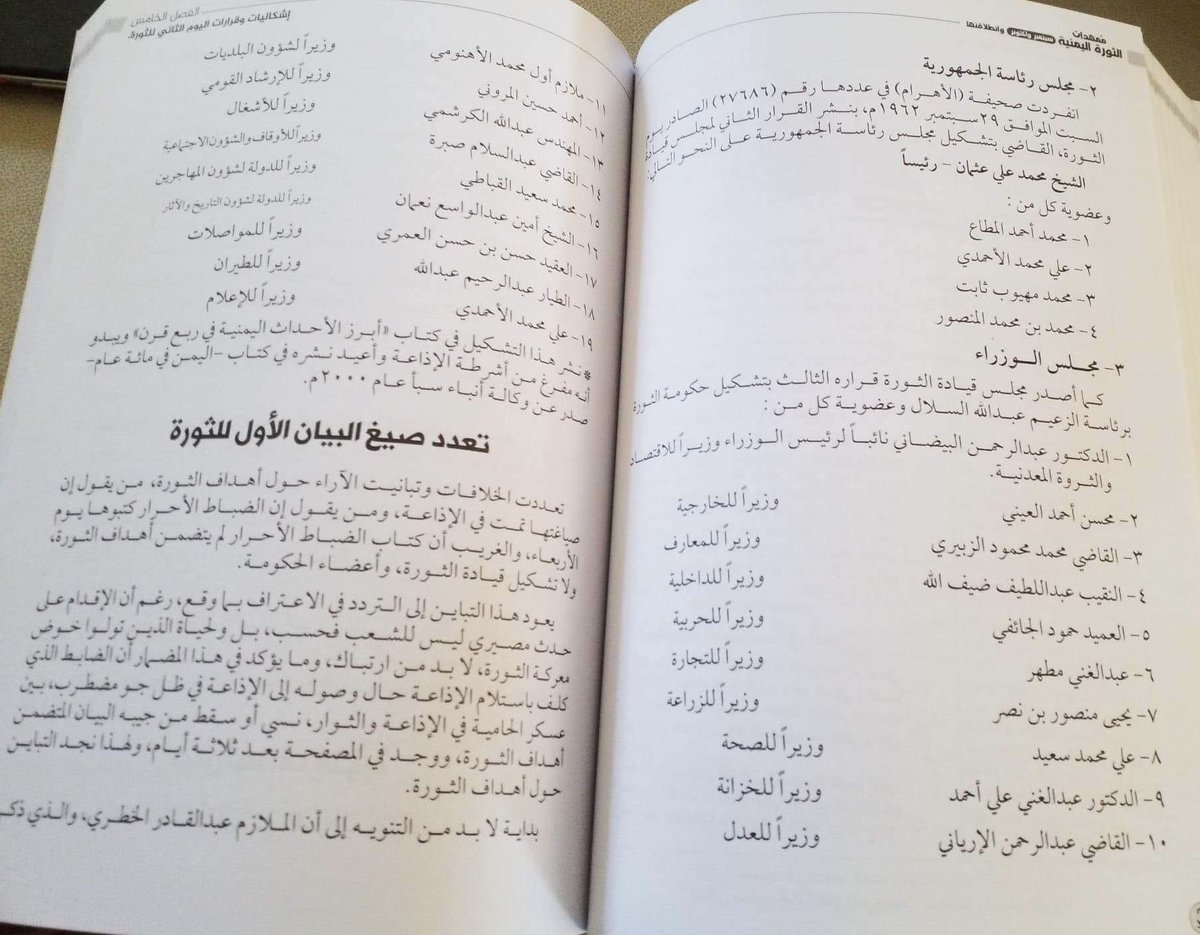 ممهدات
الثورة اليمنية سبتمبر وأكتوبر وانطلاقتها
٢- مجلس رئاسة الجمهورية
انفردت صحيفة (الأهرام) في عددها رقم (٢٧٦٨٦) الصادر يوم
السبت الموافق ٢٩ سبتمبر ١٩٦٢م، بنشر القرار الثاني لمجلس قيادة
الثورة، القاضي بتشكيل مجلس رئاسة الجمهورية على النحو التالي:
الشيخ محمد علي عثمان - رئيساً
وعضوية كل من :
١- محمد أحمد المطاع
٢- علي محمد الأحمدي
٣- محمد مهيوب ثابت
٤- محمد بن محمد المنصور
٣- مجلس الـوزراء
كما أصدر مجلس قيادة الثورة قراره الثالث بتشكيل حكومة الثورة
برئاسة الزعيم عبدالله السلال وعضوية كل من :
١- الدكتور عبدالرحمن البيضاني نائباً لرئيس الوزراء وزيراً للاقتصاد
والثروة المعدنية.
٢- محسن أحمد العيني وزيراً للخارجية
٣- القاضي محمد محمود الزبيري وزيراً للمعارف
٤- النقيب عبداللطيف ضيف الله وزيراً للداخلية
٥- العميد حمود الجائفي وزيراً للحربية
٦- عبدالغني مطهر وزيراً للتجارة
٧- يحيى منصور بن نصر وزيراً للزراعة
٨- علي محمد سعيد وزيراً للصحة
٩- الدكتور عبدالغني علي أحمد وزيراً للخزانة
١٠- القاضي عبدالرحمن الإرياني وزيراً للعدل
الفصل الخامس
إشكاليات وقرارات اليوم الثاني للثورة.
١١- ملازم أول محمد الأهنومي وزيراً لشؤون البلديات
١٢- أحمد حسين المروني وزيراً للإرشاد القومي
١٣- المهندس عبدالله الكرشمي وزيراً للأشغال
١٤- القاضي عبدالسلام صبرة وزيراً للأوقاف والشؤون الاجتماعية
١٥- محمد سعيد القباطي وزيراً للدولة لشؤون المهاجرين
١٦- الشيخ أمين عبدالواسع نعمان وزيراً للدولة لشؤون التاريخ والآثار
١٧- العقيد حسن بن حسن العمري وزيراً للمواصلات
١٨- الطيار عبدالرحيم عبدالله وزيراً للطيران
١٩- علي محمد الأحمدي وزيراً للإعلام
*نشر هذا التشكيل في كتاب «أبرز الأحداث اليمنية في ربع قرن» ويبدو
أنه مفرغ من أشرطة الإذاعة وأعيد نشره في كتاب -اليمن في مائة عام-
صدر عن وكالة أنباء سبأ عام ٢٠٠٠م.
تعدد صيغ البيان الأول للثورة
تعددت الخلافات وتبانيت الآراء حول أهداف الثورة، من يقول إن
صياغتها تمت في الإذاعة، ومن يقول إن الضباط الأحرار كتبوها يوم
الأربعاء، والغريب أن كتاب الضباط الأحرار لم يتضمن أهداف الثورة،
ولا تشكيل قيادة الثورة، وأعضاء الحكومة.
يعود هذا التباين إلى التردد في الاعتراف بما وقع، رغم أن الإقدام على
حدث مصيري ليس للشعب فحسب، بل ولحياة الذين تولوا خوض
معركة الثورة، لا بد من ارتباك، وما يؤكد في هذا المضمار أن الضابط الذي
كلف باستلام الإذاعة حال وصوله إلى الإذاعة في ظل جو مضطرب، بين
عسكر الحامية في الإذاعة والثوار، نسي أو سقط من جيبه البيان المتضمن
أهداف الثورة، ووجد في المصفحة بعد ثلاثة أيام، ولهذا نجد التباين
حول أهداف الثورة.
بداية لا بد من التنويه إلى أن الملازم عبدالقادر الخطري، والذي ذكر